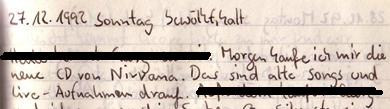 27.12.1992 Sonntag bewölkt, kalt
Morgen kaufe ich mir die
neue CD von Nirvana. Das sind alte Songs und
Live-Aufnahmen drauf.